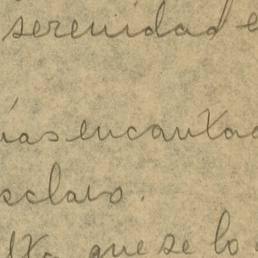 serenidad e
ías encanta
sclavo.
que se lo